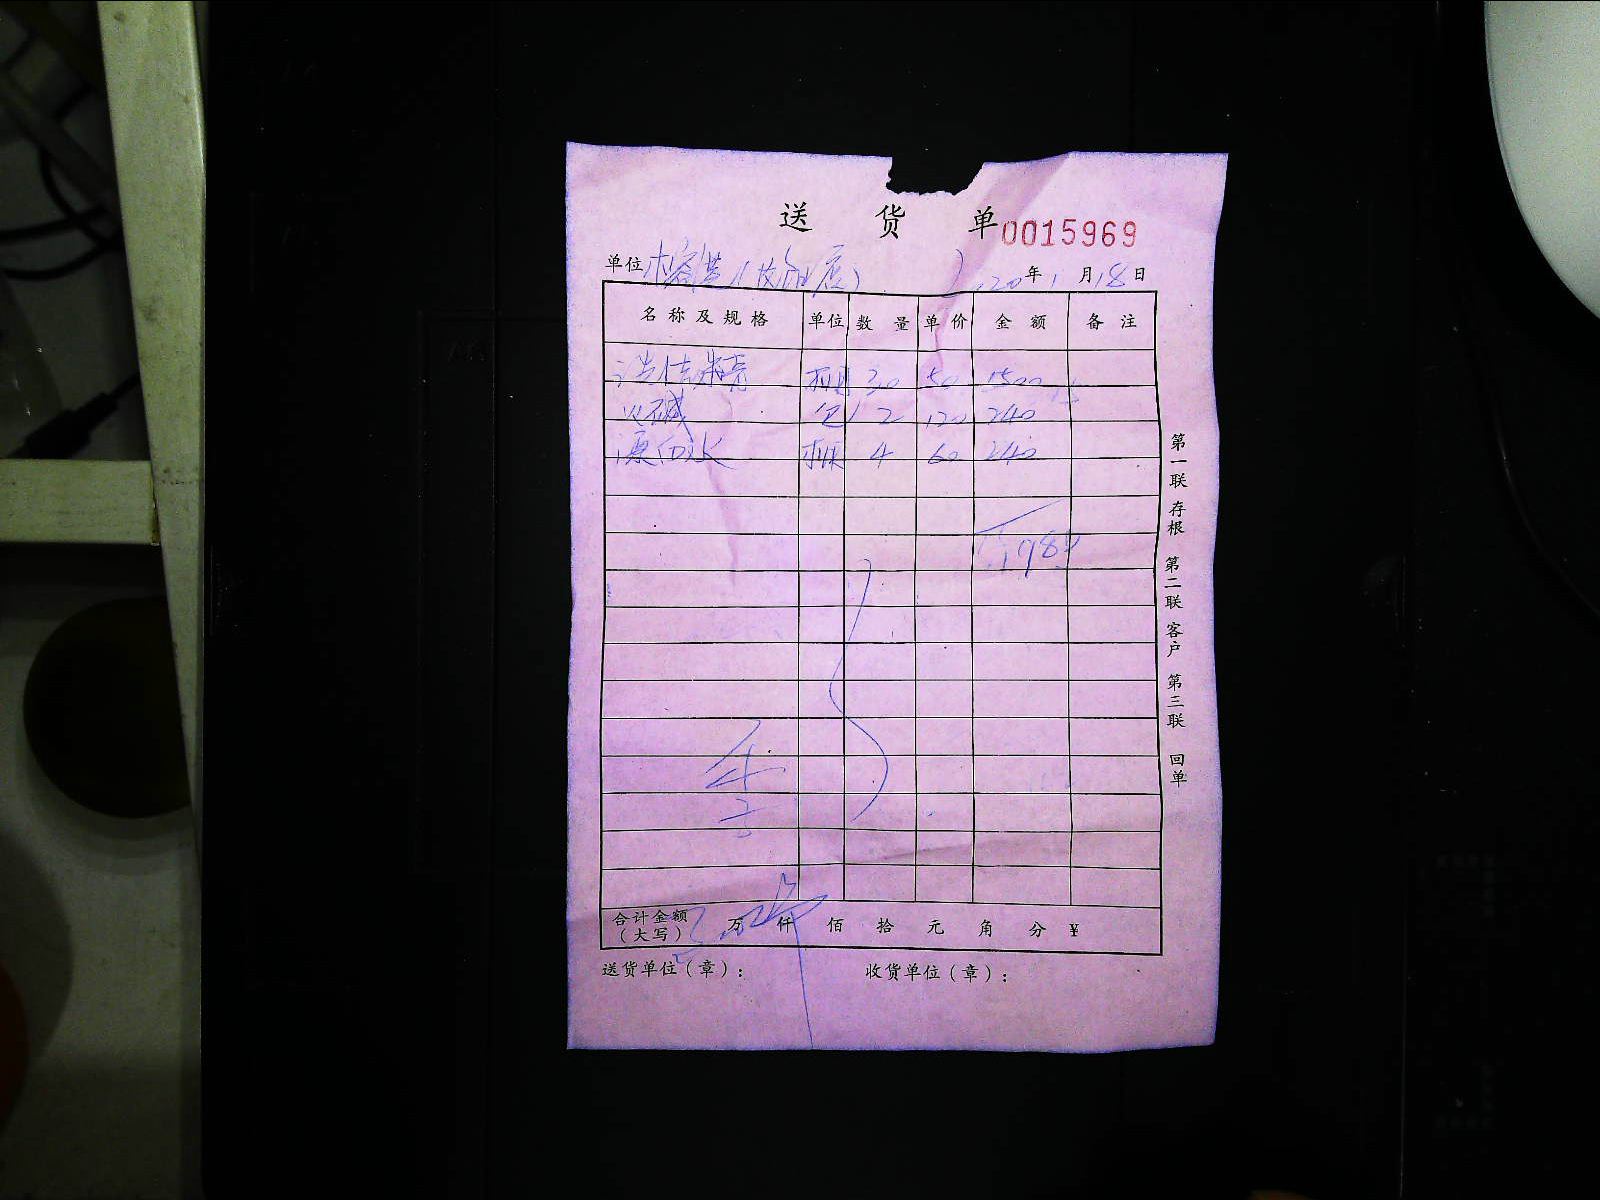 送 货 单 0015969
单位 20年1月18日
名称及规格 单位 数量 单价 金额 备注
洗洁精 30 50 1500
火碱 包 2 120 240
漂白水 瓶 4 60 240
1980
合计金额（大写） 万 仟 佰 拾 元 角 分 ¥
送货单位（章）： 收货单位（章）：
第一联 存根 第二联 客户 第三联 回单